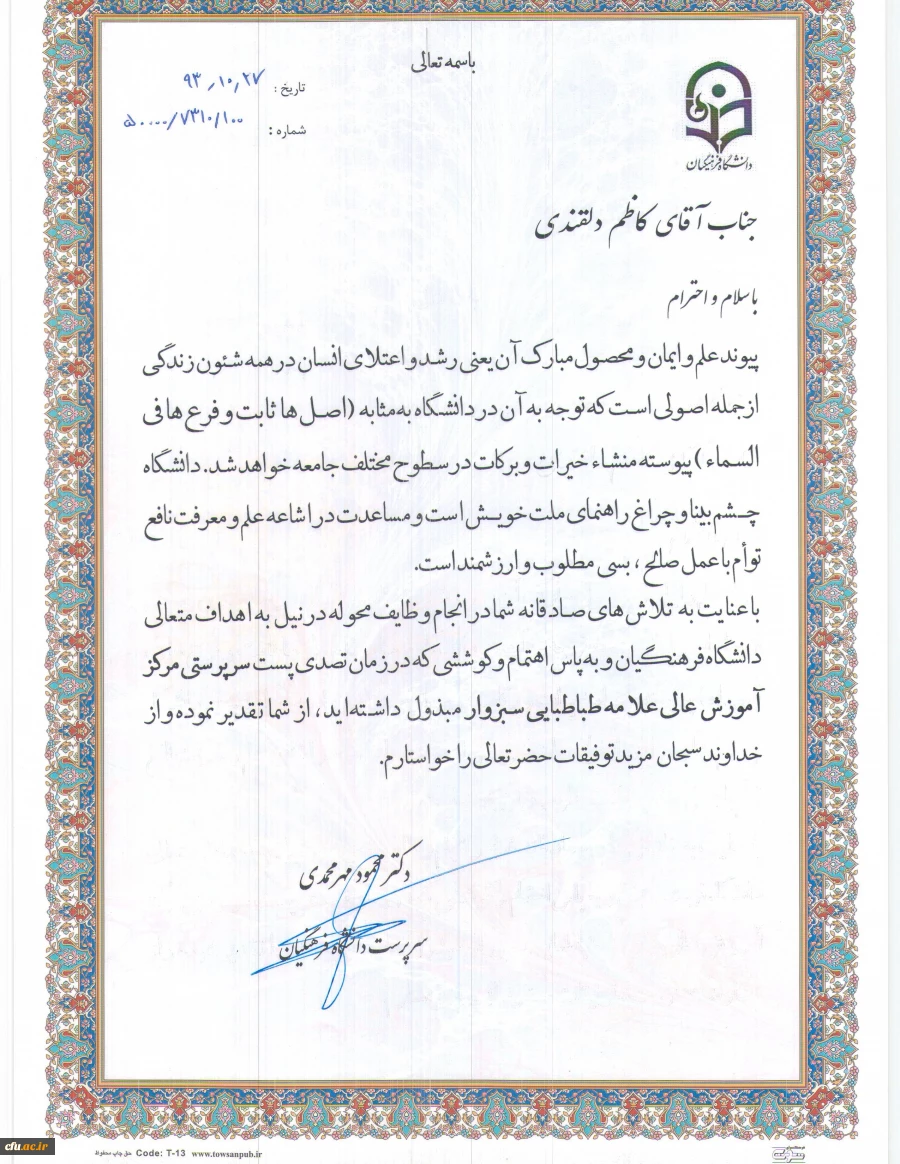 باسمه تعالی
تاریخ : ۹۳٫۱۰٫۲۷
شماره : ۵۰۰۰۰/۷۳۱۰/۱۰۰
دانشگاه فرهنگیان
جناب آقای کاظم دلقندی
با سلام و احترام
پیوند علم و ایمان و محصول مبارک آن یعنی رشد و اعتلای انسان در همه شئون زندگی
از جمله اصولی است که توجه به آن در دانشگاه به مثابه (اصل ها ثابت و فرع ها فی
السماء) پیوسته منشاء خیرات و برکات در سطوح مختلف جامعه خواهد شد. دانشگاه
چشم بینا و چراغ راهنمای ملت خویش است و مساعدت در اشاعه علم و معرفت نافع
توأم با عمل صالح ، بسی مطلوب و ارزشمند است.
با عنایت به تلاش های صادقانه شما در انجام وظایف محوله در نیل به اهداف متعالی
دانشگاه فرهنگیان و به پاس اهتمام و کوششی که در زمان تصدی پست سرپرستی مرکز
آموزش عالی علامه طباطبایی سبزوار مبذول داشته اید ، از شما تقدیر نموده و از
خداوند سبحان مزید توفیقات حضرتعالی را خواستارم.
دکتر محمود مهرمحمدی
سرپرست دانشگاه فرهنگیان
cfu.ac.ir
حق چاپ محفوظ Code: T-13 www.towsanpub.ir